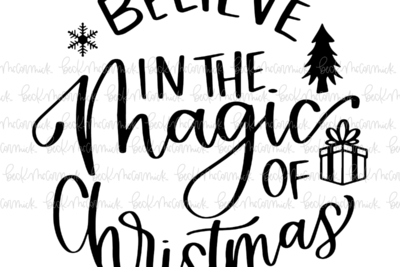 BELIEVE
IN THE
magic
OF
Christmas